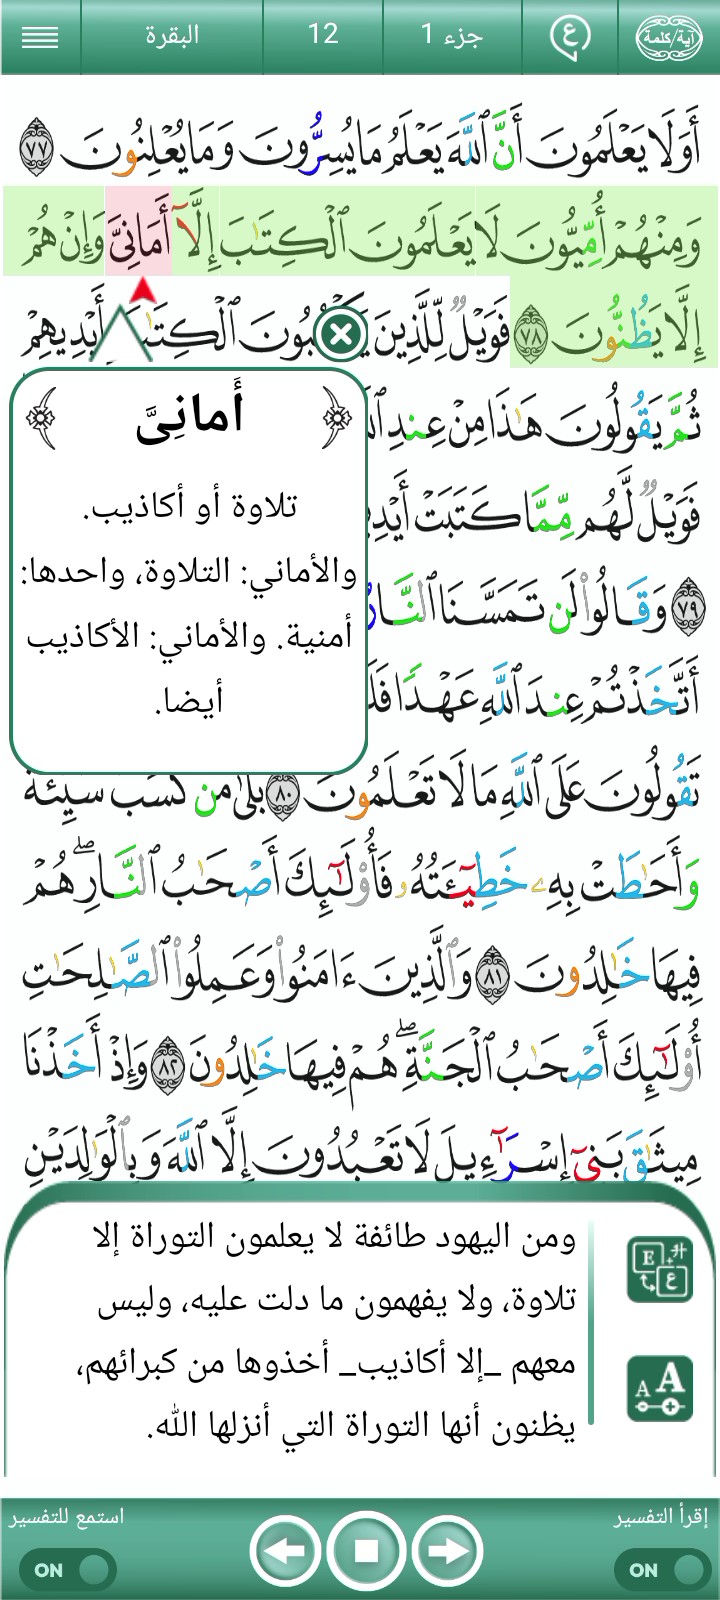 آية/كلمة
ع
جزء 1
12
البقرة
أَوَلَا يَعْلَمُونَ أَنَّ ٱللَّهَ يَعْلَمُ مَا يُسِرُّونَ وَمَا يُعْلِنُونَ ٧٧
وَمِنْهُمْ أُمِّيُّونَ لَا يَعْلَمُونَ ٱلْكِتَٰبَ إِلَّآ أَمَانِىَّ وَإِنْ هُمْ
إِلَّا يَظُنُّونَ ٧٨ فَوَيْلٌ لِّلَّذِينَ ٱلْكِتَٰبَ أَيْدِيهِمْ
أَمانِىَّ
تلاوة أو أكاذيب.
والأماني: التلاوة، واحدها:
أمنية. والأماني: الأكاذيب
أيضا.
ثُمَّ يَقُولُونَ هَٰذَا مِنْ عِندِ
فَوَيْلٌ لَّهُم مِّمَّا كَتَبَتْ
٧٩ وَقَالُوا۟ لَن تَمَسَّنَا ٱلنَّارُ
أَتَّخَذْتُمْ عِندَ ٱللَّهِ عَهْدًا
تَقُولُونَ عَلَى ٱللَّهِ مَا لَا تَعْلَمُونَ ٨٠ بَلَىٰ مَن كَسَبَ سَيِّئَةً
وَأَحَٰطَتْ بِهِۦ خَطِيٓـَٔتُهُۥ فَأُو۟لَٰٓئِكَ أَصْحَٰبُ ٱلنَّارِ ۖ هُمْ
فِيهَا خَٰلِدُونَ ٨١ وَٱلَّذِينَ ءَامَنُوا۟ وَعَمِلُوا۟ ٱلصَّٰلِحَٰتِ
أُو۟لَٰٓئِكَ أَصْحَٰبُ ٱلْجَنَّةِ ۖ هُمْ فِيهَا خَٰلِدُونَ ٨٢ وَإِذْ أَخَذْنَا
مِيثَٰقَ بَنِىٓ إِسْرَٰٓءِيلَ لَا تَعْبُدُونَ إِلَّا ٱللَّهَ وَبِٱلْوَٰلِدَيْنِ
ومن اليهود طائفة لا يعلمون التوراة إلا
تلاوة، ولا يفهمون ما دلت عليه، وليس
معهم _إلا أكاذيب_ أخذوها من كبرائهم،
يظنون أنها التوراة التي أنزلها الله.
E ع
A A
إقرأ التفسير
ON
استمع للتفسير
ON